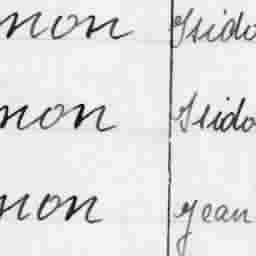 non Isido
non Isido
non Jean